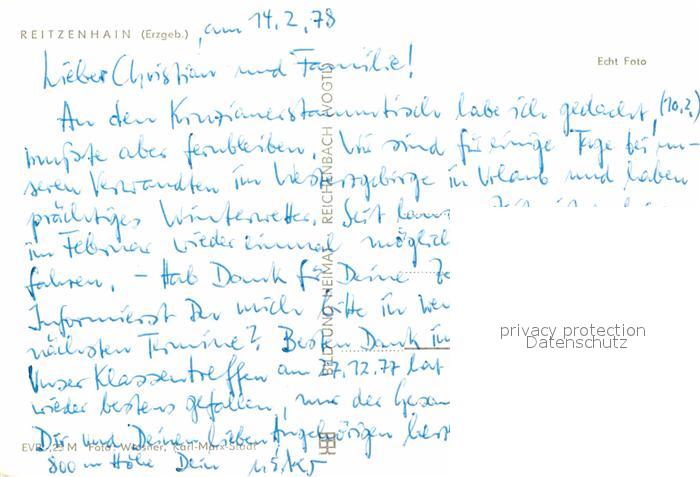 REITZENHAIN (Erzgeb.), am 14.2.78
Echt Foto
Lieber Christian und Familie!
An den Kruzianerstammtisch habe ich gedacht, (10.2.)
mußte aber fernbleiben. Wir sind für einige Tage bei un-
seren Verwandten im Westerzgebirge in Urlaub und haben
prächtiges Winterwetter. Seit
im Februar wieder einmal möglich
fahren. – Hab Dank für Deine
Informierst Du mich bitte in
nächsten Termine? Besten Dank im
Unser Klassentreffen am 27.12.77 hat
wieder bestens gefallen, nur der Gesan
Dir und Deinen lieben Angehörigen
800 m Höhe Dein
BILD UND HEIMAT REICHENBACH (VOGTL
Foto: Karl-Marx-Stadt
privacy protection
Datenschutz